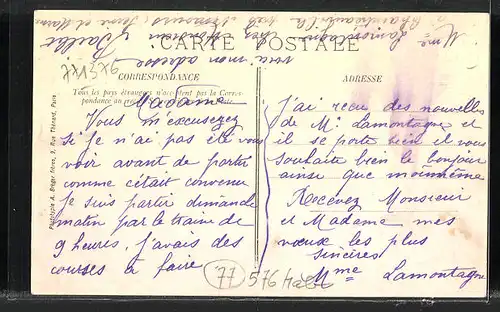 CARTE POSTALE
voici mon adresse
Mme Lamontagne chez Monsieur
CORRESPONDANCE
Tous les pays étrangers n'acceptent pas la Corres-
pondance au
ADRESSE
Phototypie A. Breger frères, 9, Rue Thénard, Paris
Madame
Vous m'excuserez
si je n'ai pas été vous
voir avant de partir
comme cétait convenu
je suis partir dimanche
matin par le train de
9 heures, j'avais des
courses à faire
J'ai recu des nouvelles
de Mr Lamontagne et
il se porte bien il vous
souhaite bien le bonjour
ainsi que moi même
Recevez Monsieur
et Madame mes
vœux les plus
sincères
Mme Lamontagne
77
576